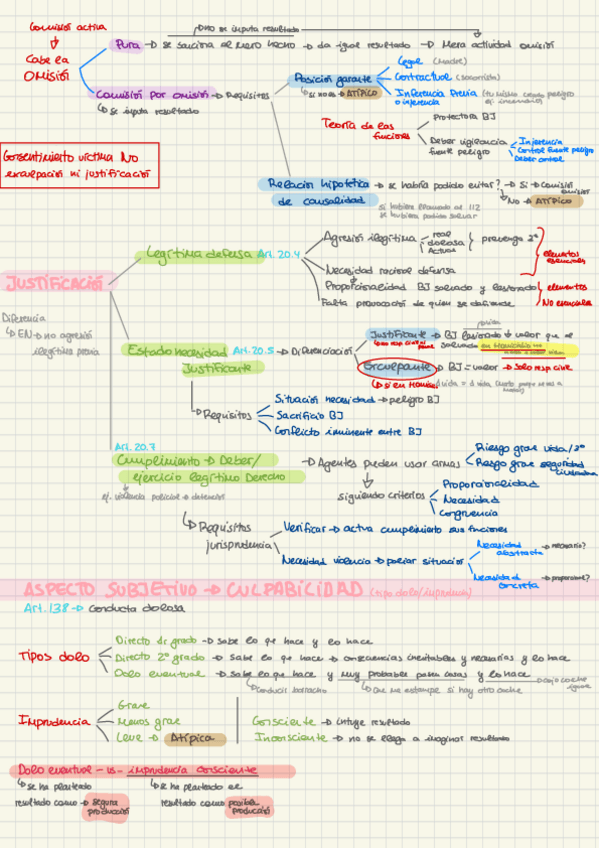 Comisión activa
Cabe la
OMISIÓN
no se imputa resultado
Pura → se sanciona el mero hecho → da igual resultado → Mera actividad omisión
Comisión por omisión → Requisitos
se imputa resultado
Posición garante
si no es → ATÍPICO
Legal (Madre)
Contractual (socorrista)
Injerencia Previa
o injerencia
Teoría de las
funciones
Protectora BJ
Deber vigilancia
fuente peligro
Injerencia
Control fuente peligro
Deber control
Consentimiento víctima NO
exculpación ni justificación
Relación hipotética
de causalidad
→ se habría podido evitar? → Si → Comisión
omisión
No → ATÍPICO
si hubiera llamado al 112
se hubiera podido salvar
JUSTIFICACIÓN
Diferencia
EN → no agresión
ilegítima previa
Legítima defensa Art. 20.4
Agresión ilegítima
real
dolosa
Actual
Necesidad racional defensa
elementos
esenciales
Proporcionalidad BJ salvado y lesionado
Falta provocación de quien se defiende
elementos
No esenciales
Estado necesidad Art. 20.5 → Diferenciación
Justificante
Justificante → BJ lesionado ≠ valor que el
salvado en Homicidio no
Exculpante → BJ = valor → solo resp civil
Requisitos
Situación necesidad → peligro BJ
Sacrificio BJ
Conflicto inminente entre BJ
Art. 20.7
Cumplimiento → Deber/
ejercicio legítimo Derecho
ej. violencia policial → detención
→ Agentes pueden usar armas
Riesgo grave vida/3º
Riesgo grave seguridad
ciudadana
siguiendo criterios
Proporcionalidad
Necesidad
congruencia
Requisitos
jurisprudencia
Verificar → actua cumplimiento sus funciones
Necesidad violencia → paliar situación
Necesidad
abstracta → necesario?
Necesidad
concreta → proporcional?
ASPECTO SUBJETIVO → CULPABILIDAD (tipo dolo/imprudencia)
Art. 138 → Conducta dolosa
TIPOS DOLO
Directo 1r grado → sabe lo que hace y lo hace
Directo 2º grado → sabe lo que hace → consecuencias inevitables y necesarias y lo hace
Dolo eventual → sabe lo que hace y muy probable pasen cosas y lo hace
cojo coche
igual
Conducir borracho
Que me estampe si hay otro coche
Imprudencia
Grave
Menos grave
Leve → Atípica
Consciente → intuye resultado
Inconsciente → no se llega a imaginar resultado
Dolo eventual - vs - imprudencia consciente
se ha planteado
resultado como → segura
producción
se ha planteado el
resultado como posible
producción